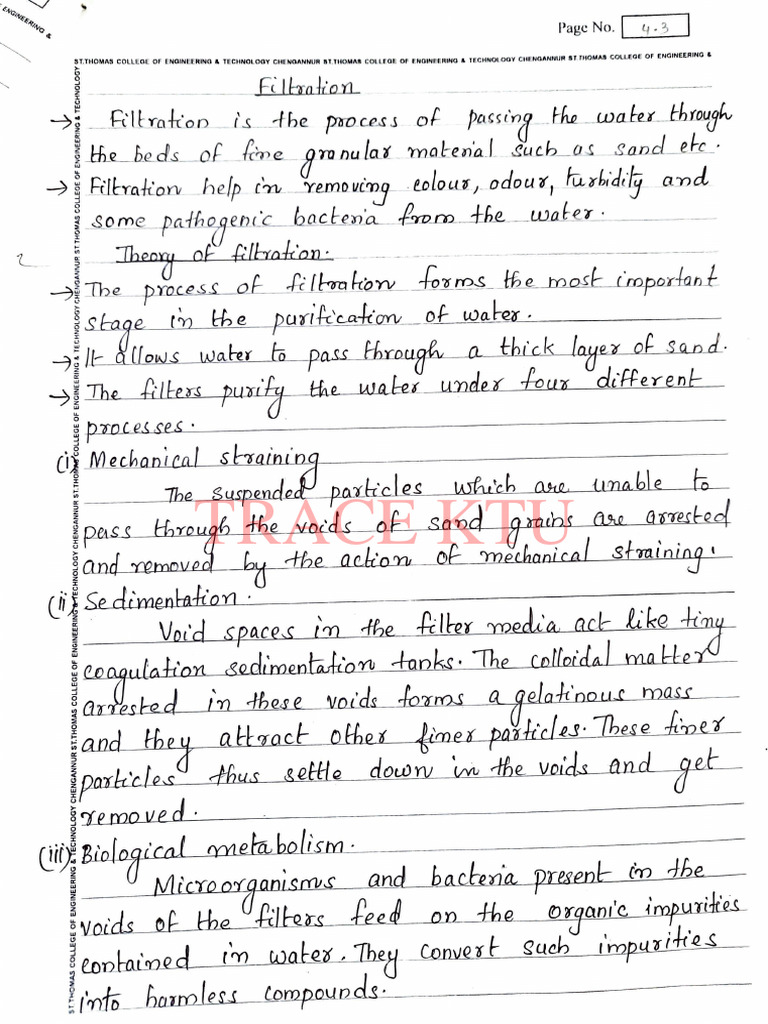 ENGINEERING &
Page No. 4.3
ST.THOMAS COLLEGE OF ENGINEERING & TECHNOLOGY CHENGANNUR ST.THOMAS COLLEGE OF ENGINEERING & TECHNOLOGY CHENGANNUR ST.THOMAS COLLEGE OF ENGINEERING &
Filtration
→ Filtration is the process of passing the water through
the beds of fine granular material such as sand etc.
→ Filtration help in removing colour, odour, turbidity and
some pathogenic bacteria from the water.
Theory of filtration.
→ The process of filtration forms the most important
stage in the purification of water.
→ It allows water to pass through a thick layer of sand.
→ The filters purify the water under four different
processes.
(i) Mechanical straining
The suspended particles which are unable to
TRACE KTU
pass through the voids of sand grains are arrested
and removed by the action of mechanical straining.
(ii) Sedimentation.
Void spaces in the filter media act like tiny
coagulation sedimentation tanks. The colloidal matter
arrested in these voids forms a gelatinous mass
and they attract other finer particles. These finer
particles thus settle down in the voids and get
removed.
(iii) Biological metabolism.
Microorganisms and bacteria present in the
voids of the filters feed on the organic impurities
contained in water. They convert such impurities
into harmless compounds.
ST.THOMAS COLLEGE OF ENGINEERING & TECHNOLOGY CHENGANNUR ST.THOMAS COLLEGE OF ENGINEERING & TECHNOLOGY CHENGANNUR ST.THOMAS COLLEGE OF ENGINEERING & TECHNOLOGY CHENGANNUR ST.THOMAS COLLEGE OF ENGINEERING & TECHNOLOGY